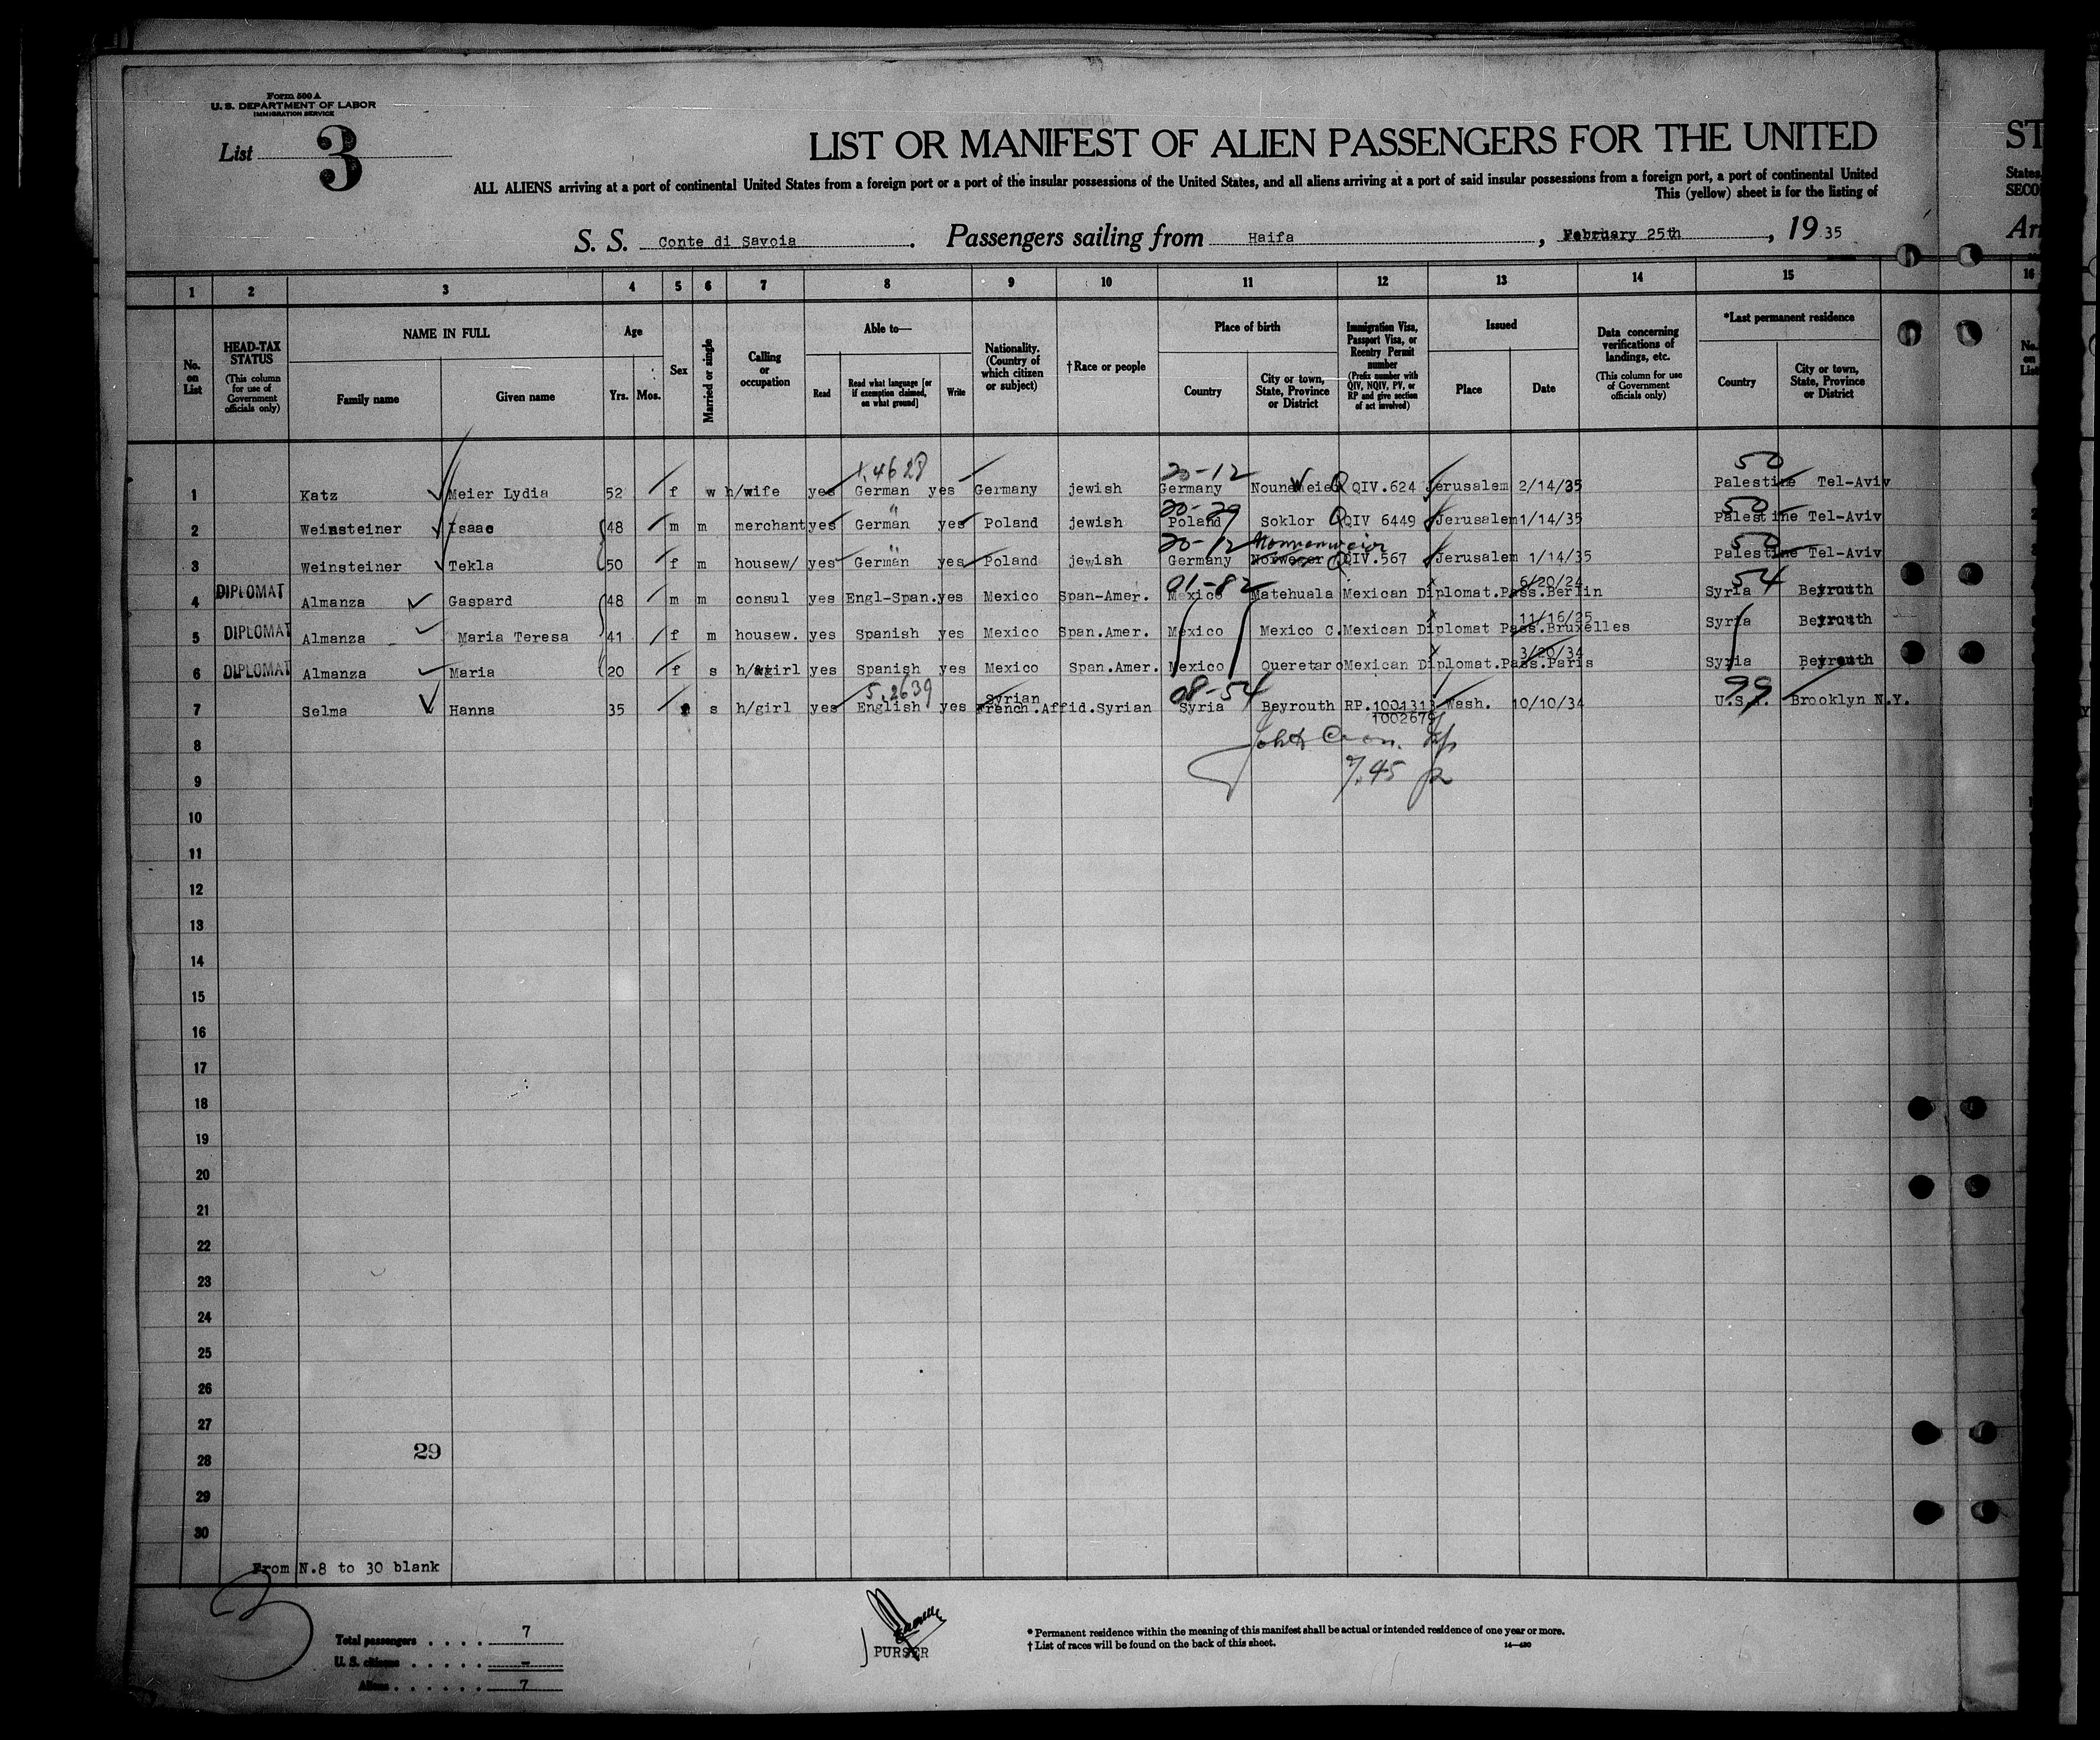 Form 500 A
U. S. DEPARTMENT OF LABOR
IMMIGRATION SERVICE
List 3
LIST OR MANIFEST OF ALIEN PASSENGERS FOR THE UNITED
ST
ALL ALIENS arriving at a port of continental United States from a foreign port or a port of the insular possessions of the United States, and all aliens arriving at a port of said insular possessions from a foreign port, a port of continental United
States,
This (yellow) sheet is for the listing of
SECO
S. S. Conte di Savoia . Passengers sailing from Haifa , February 25th , 19 35
Arr
1 2 3 4 5 6 7 8 9 10 11 12 13 14 15 16
No. on List
HEAD-TAX STATUS
(This column for use of Government officials only)
NAME IN FULL
Family name
Given name
Age
Yrs. Mos.
Sex
Married or single
Calling or occupation
Able to—
Read
Read what language [or if exemption claimed, on what ground]
Write
Nationality. (Country of which citizen or subject)
† Race or people
Place of birth
Country
City or town, State, Province or District
Immigration Visa, Passport Visa, or Reentry Permit number
(Prefix number with QIV, NQIV, PV, or RP and give section of act involved)
Issued
Place
Date
Data concerning verifications of landings, etc.
(This column for use of Government officials only)
*Last permanent residence
Country
City or town, State, Province or District
No. on List
1.4628 20-12 50
1 Katz Meier Lydia 52 f w h/wife yes German yes Germany jewish Germany QIV.624 Jerusalem 2/14/35 Palestine Tel-Aviv
20-29 50
2 Weinsteiner Isaac 48 m m merchant yes German yes Poland jewish Poland Soklor QIV 6449 Jerusalem 1/14/35 Palestine Tel-Aviv
20-12 Nonnenweier 50
3 Weinsteiner Tekla 50 f m housew/ yes German yes Poland jewish Germany QIV.567 Jerusalem 1/14/35 Palestine Tel-Aviv
DIPLOMAT 01-82 6/20/24 54
4 Almanza Gaspard 48 m m consul yes Engl-Span. yes Mexico Span-Amer. Mexico Matehuala Mexican Diplomat.Pass.Berlin Syria Beyrouth
DIPLOMAT 11/16/25
5 Almanza Maria Teresa 41 f m housew. yes Spanish yes Mexico Span.Amer. Mexico Mexico C. Mexican Diplomat Pass.Bruxelles Syria Beyrouth
DIPLOMAT 3/20/34
6 Almanza Maria 20 f s h/girl yes Spanish yes Mexico Span.Amer. Mexico Queretaro Mexican Diplomat.Pass.Paris Syria Beyrouth
5.2639 Syrian 08-54 99
7 Selma Hanna 35 s h/girl yes English yes French.Affid.Syrian Syria Beyrouth RP.1001313 Wash. 10/10/34 U.S.A. Brooklyn N.Y.
1002679
8
7.45
9
10
11
12
13
14
15
16
17
18
19
20
21
22
23
24
25
26
27
29
28
29
30
From N.8 to 30 blank
3
Total passengers . . . . 7
U. S. citizens . . . . . –
Aliens . . . . . . 7
PURSER
* Permanent residence within the meaning of this manifest shall be actual or intended residence of one year or more.
† List of races will be found on the back of this sheet.
14—430